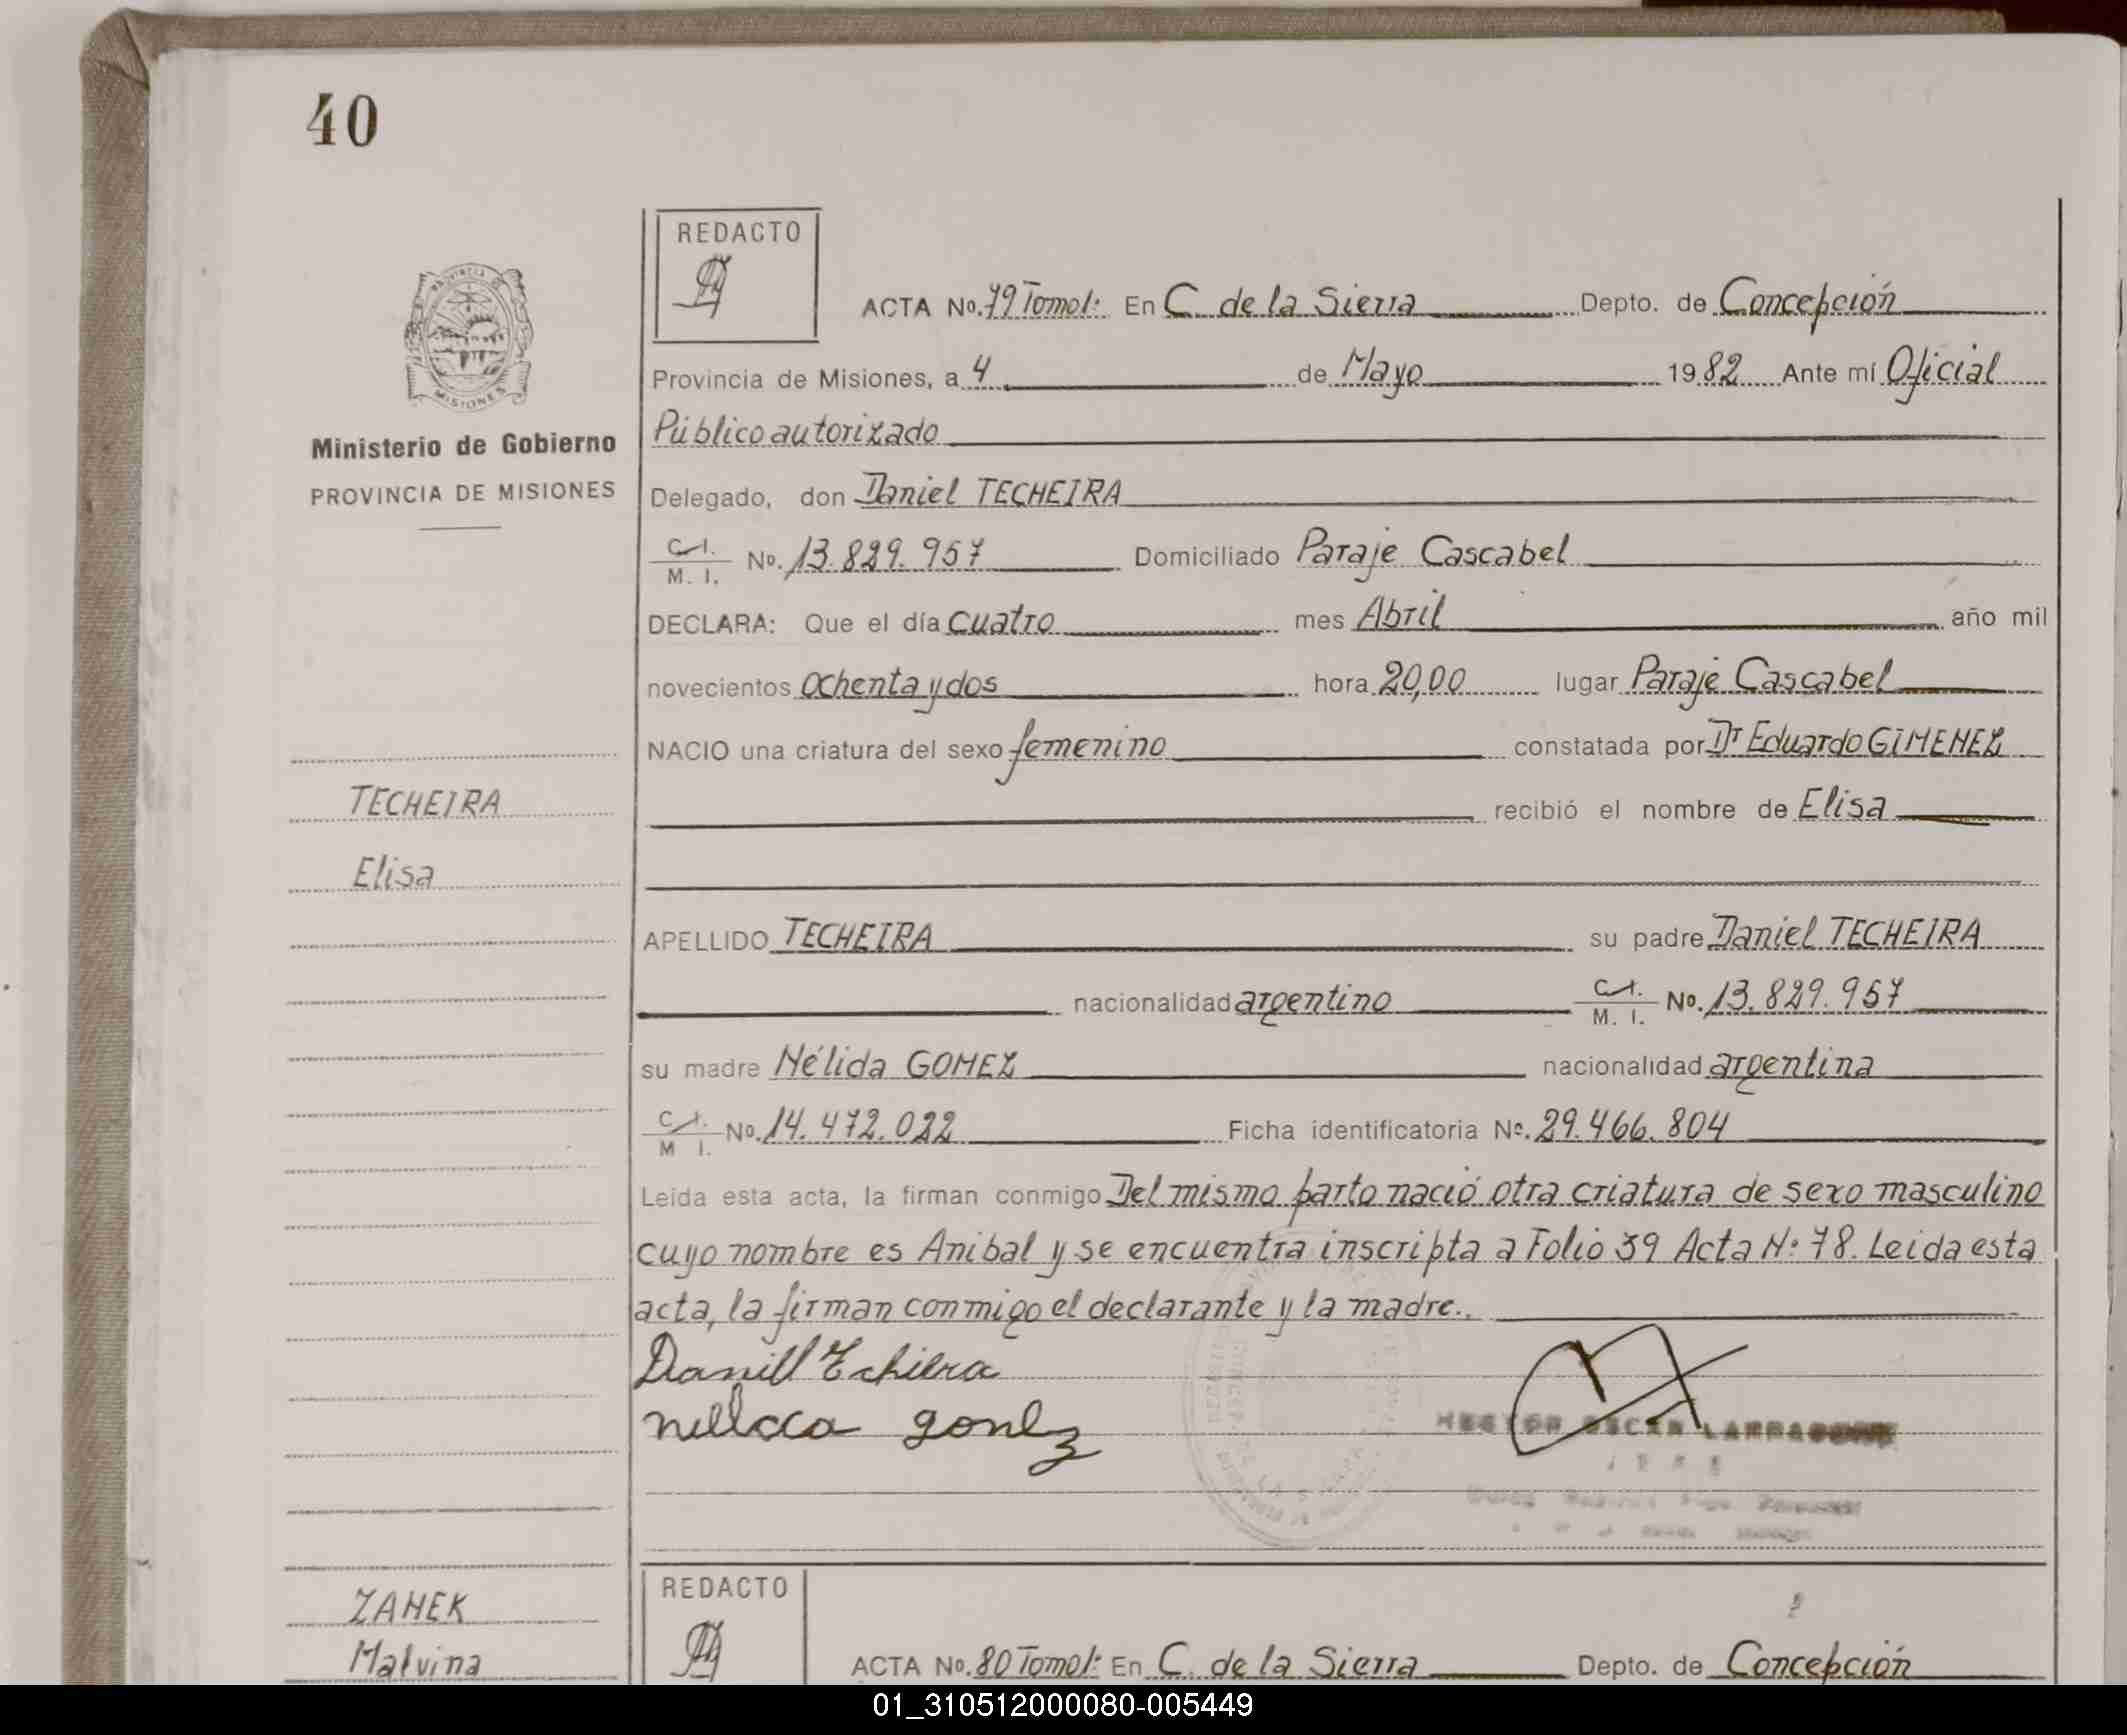 40
REDACTO
ACTA No. 79 Tomo I: En C. de la Sierra Depto. de Concepción
PROVINCIA DE
MISIONES
Provincia de Misiones, a 4 de Mayo 1982 Ante mí Oficial
Público autorizado
Ministerio de Gobierno
PROVINCIA DE MISIONES
Delegado, don Daniel TECHEIRA
C.I. M. I. No. 13.829.957 Domiciliado Paraje Cascabel
DECLARA: Que el día cuatro mes Abril año mil
novecientos ochenta y dos hora 20,00 lugar Paraje Cascabel
NACIO una criatura del sexo femenino constatada por Dr Eduardo GIMENEZ
TECHEIRA
recibió el nombre de Elisa
Elisa
APELLIDO TECHEIRA su padre Daniel TECHEIRA
nacionalidad argentino C.I. M. I. No. 13.829.957
su madre Nélida GOMEZ nacionalidad argentina
C.I. M I. No. 14.472.022 Ficha identificatoria No. 29.466.804
Leida esta acta, la firman conmigo Del mismo parto nació otra criatura de sexo masculino
cuyo nombre es Anibal y se encuentra inscripta a Folio 39 Acta N: 78. Leida esta
acta, la firman conmigo el declarante y la madre..
HECTOR OSCAR
ZANEK
Malvina
REDACTO
ACTA No. 80 Tomo I: En C. de la Sierra Depto. de Concepción
01_310512000080-005449